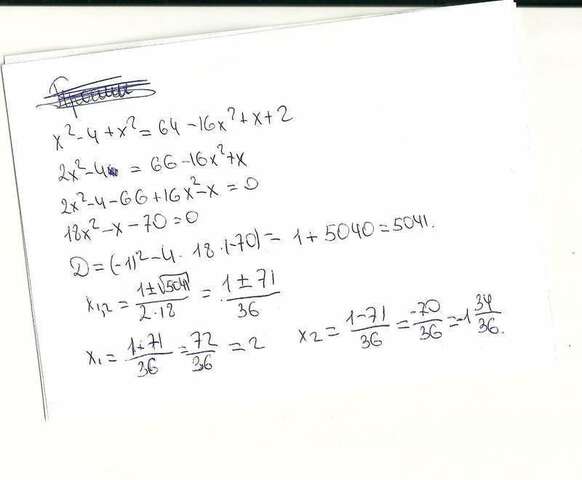 x² - 4 + x² = 64 - 16x² + x + 2
2x² - 4 = 66 - 16x² + x
2x² - 4 - 66 + 16x² - x = 0
18x² - x - 70 = 0
D = (-1)² - 4 · 18 · (-70) = 1 + 5040 = 5041.
x₁,₂ = (1 ± √5041)/(2 · 18) = (1 ± 71)/36
x₁ = (1 + 71)/36 = 72/36 = 2 x₂ = (1 - 71)/36 = -70/36 = -1 34/36.